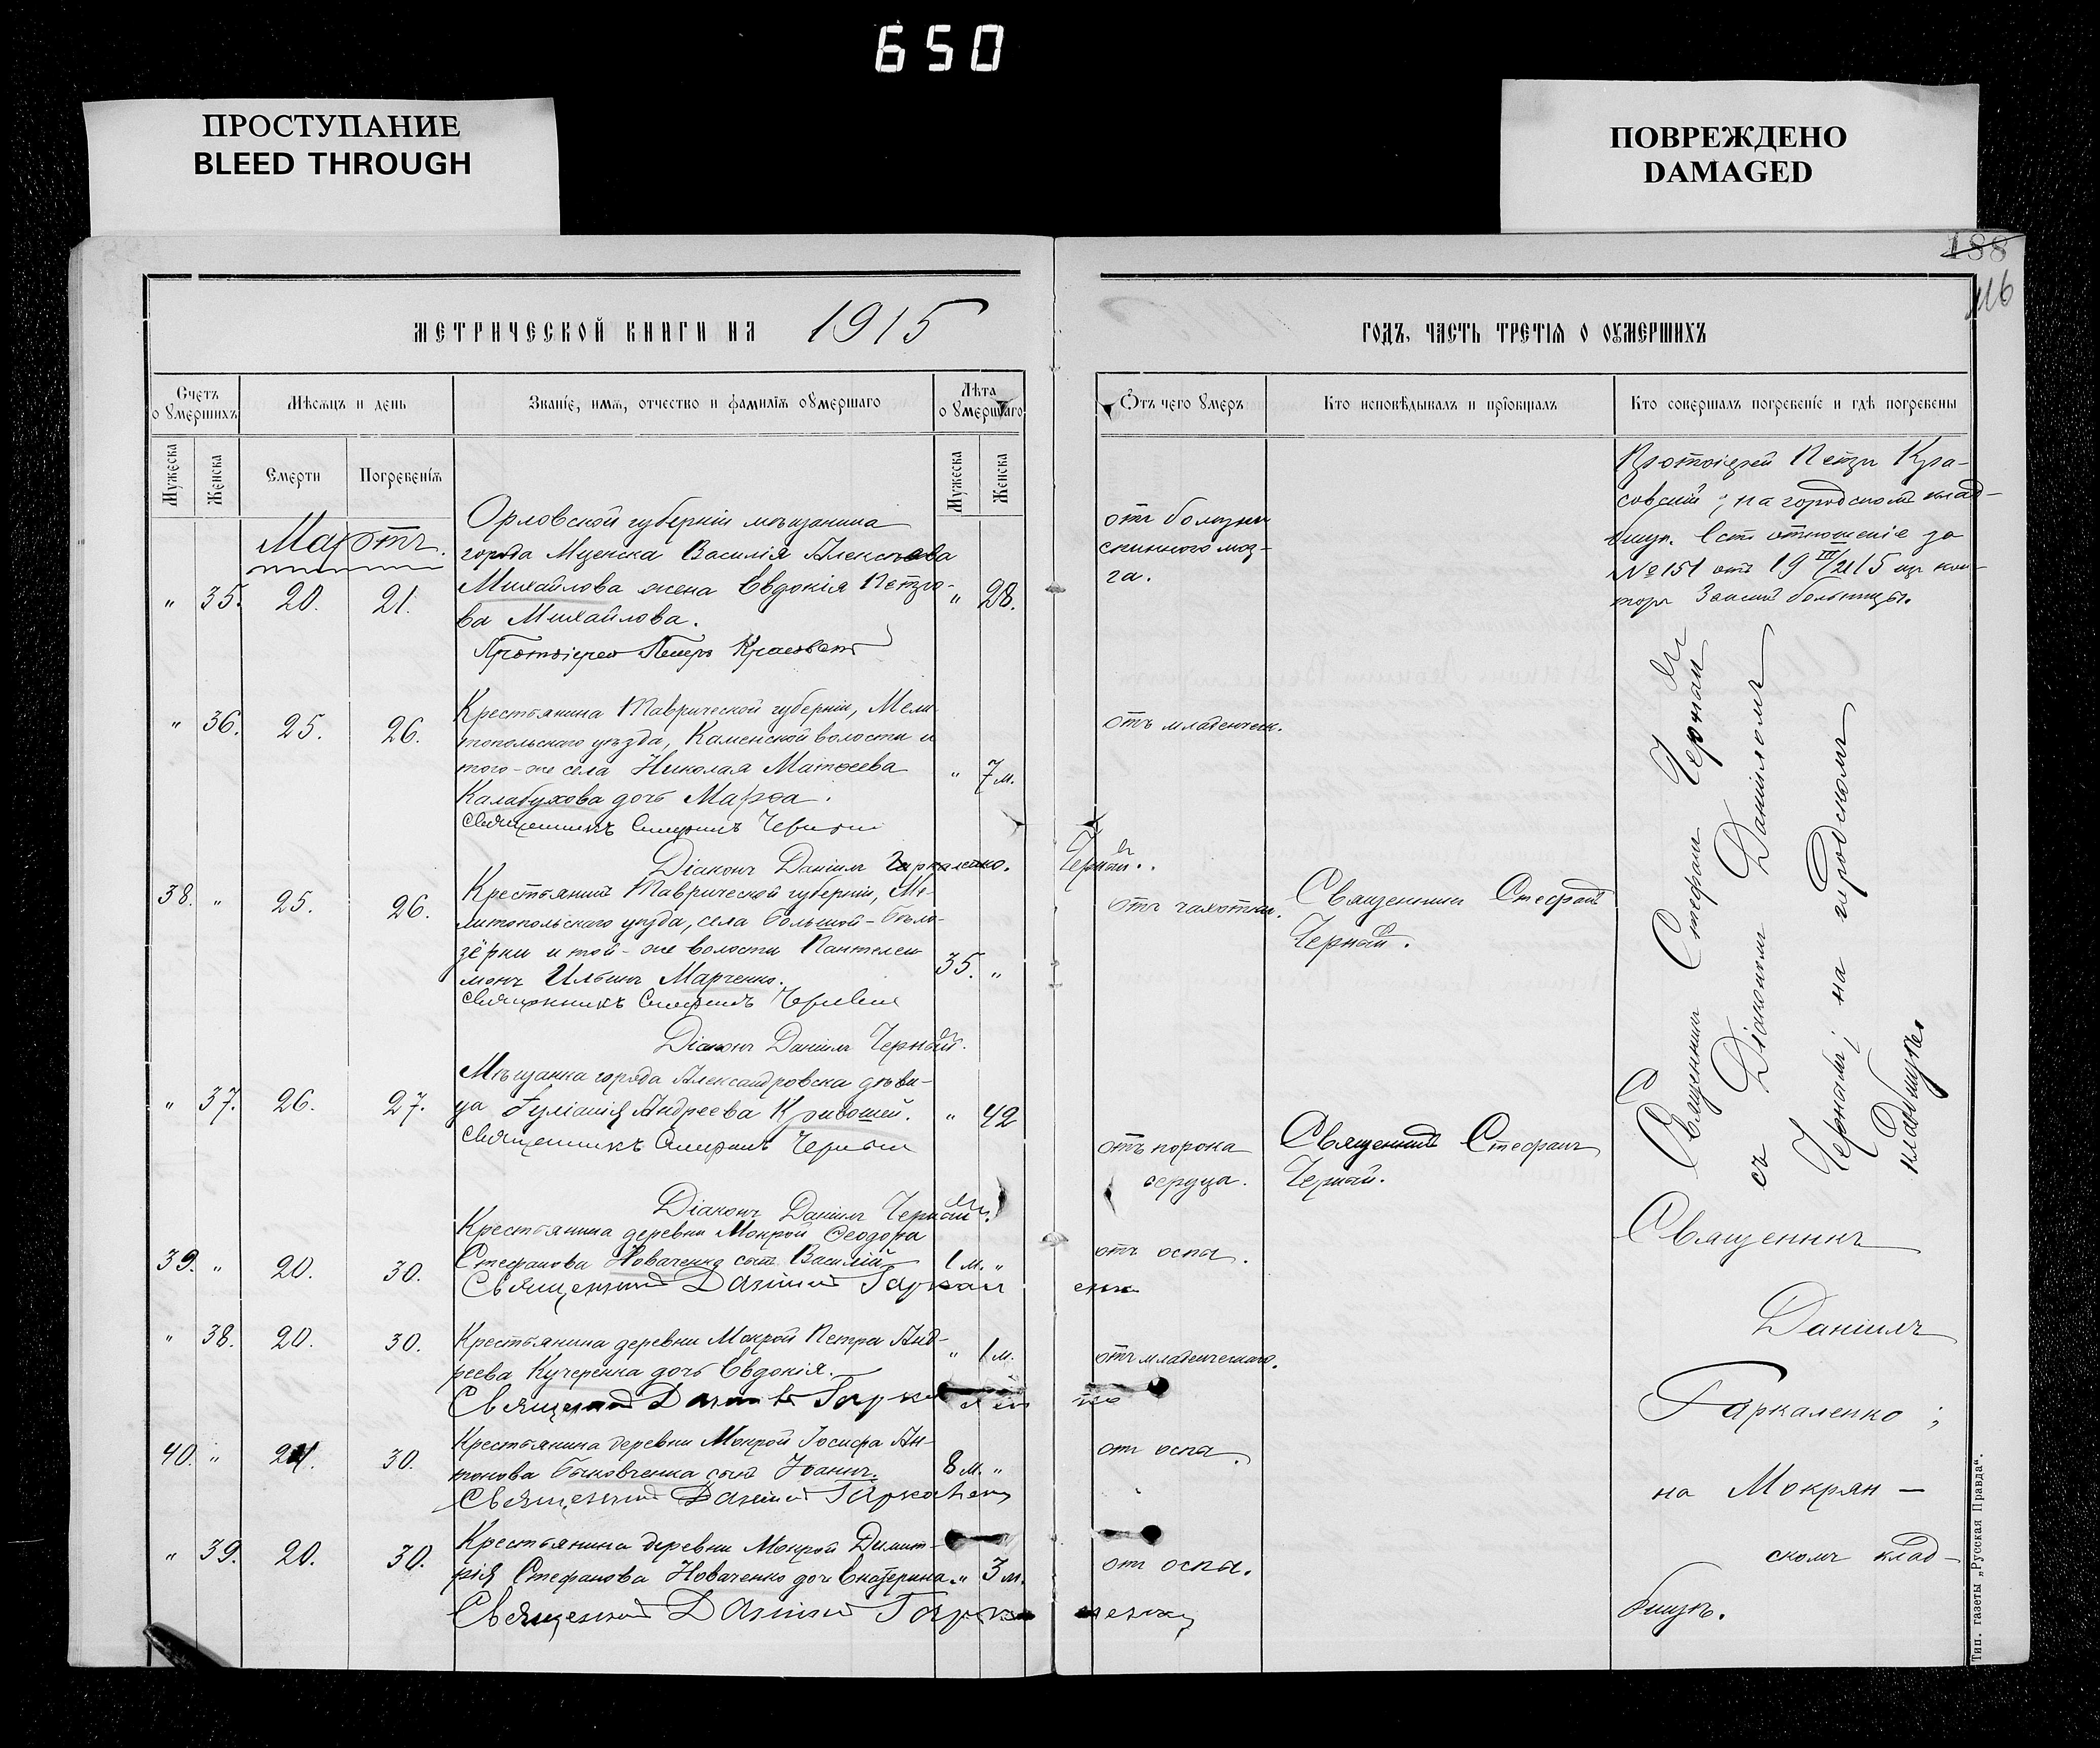 650
ПРОСТУПАНИЕ
BLEED THROUGH
ПОВРЕЖДЕНО
DAMAGED
188
116
МЕТРИЧЕСКОЙ КНИГИ НА 1915
ГОДЪ, ЧАСТЬ ТРЕТІЯ О ОУМЕРШИХЪ
Счетъ
о Умершихъ
Мужеска
Женска
Мѣсяцъ и день
Смерти
Погребенія
Званіе, имя, отчество и фамилія оумершаго
Лѣта
о Умершаго
Мужеска
Женска
Отъ чего Умеръ
Кто исповѣдывалъ и пріобщалъ
Кто совершалъ погребеніе и гдѣ погребены
Мартъ.
" 35. 20. 21.
Орловской губерніи мѣщанина
города Мценска Василія Алексѣева
Михайлова жена Евдокія Петро-
ва Михайлова.
" 28.
Протоіерей Петръ Красовскій
отъ болѣзни
спинного моз-
га.
Протоіерей Петръ Кра-
совскій; на городскомъ клад-
бищѣ. Есть отношеніе за
№ 151 отъ 19 III/21 15 из кон-
торы Земской больницы.
" 36. 25. 26.
Крестьянина Таврической губерніи, Мели-
топольскаго уѣзда, Каменской волости и
того-же села Николая Матѳеева
Калабухова дочь Марѳа.
" 7 м.
Священникъ Стефанъ Черный
Діаконъ Даніилъ Гаркаленко.
Черный.
отъ младенческ.
38. " 25. 26.
Крестьянинъ Таврической губерніи, Ме-
литопольскаго уѣзда, села Большой-Бѣло-
зёрки и той-же волости Пантелеи-
монъ Ильинъ Марченко.
35. "
Священникъ Стефанъ Черный
Діаконъ Даніилъ Черный.
отъ чахотки.
Священникъ Стефанъ
Черный.
" 37. 26. 27.
Мѣщанка города Александровска дѣви-
ца Іуліанія Андреева Кривошей.
" 42
Священникъ Стефанъ Черный
Діаконъ Даніилъ Черный.
отъ порока
сердца.
Священникъ Стефанъ
Черный.
Священникъ Стефанъ Черный
съ Діакономъ Даніиломъ
Чернымъ; на городскомъ
кладбищѣ.
39. " 20. 30.
Крестьянина деревни Мокрой Ѳеодора
Стефанова Новаченко сынъ Василій
1 м. "
Священникъ Даніилъ Гаркаленко
отъ оспы.
" 38. 20. 30.
Крестьянина деревни Мокрой Петра Анд-
реева Кучеренка дочь Евдокія.
" 1 м.
Священникъ Даніилъ Гаркаленко
отъ младенческаго.
40. " 24. 30.
Крестьянина деревни Мокрой Іосифа Ан-
тонова Быковченка сынъ Іоаннъ.
8 м. "
Священникъ Даніилъ Гаркаленко
отъ оспы.
" 39. 20. 30.
Крестьянина деревни Мокрой Димит-
рія Стефанова Новаченко дочь Екатерина.
" 3 м.
Священникъ Даніилъ Гаркаленко
отъ оспы.
Священникъ
Даніилъ
Гаркаленко;
на Мокрян-
скомъ клад-
бищѣ.
Тип. газеты „Русская Правда“.